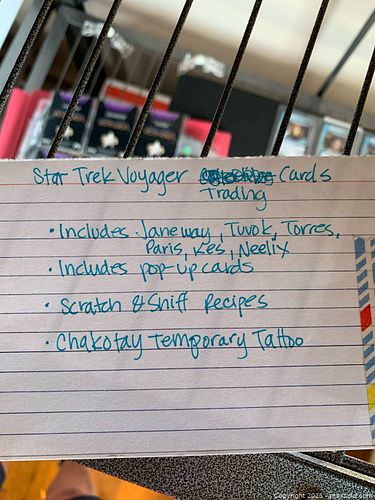 Star Trek Voyager Cards
Trading
• Includes Janeway, Tuvok, Torres,
Paris, Kes, Neelix
• Includes pop-up cards
• Scratch & Sniff Recipes
• Chakotay Temporary Tattoo